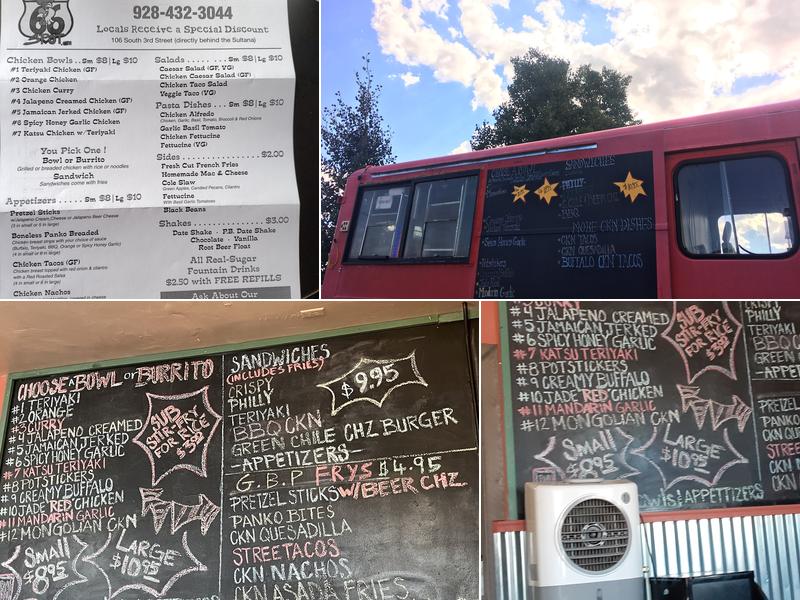 66
928-432-3044
Locals Receive a Special Discount
106 South 3rd Street (directly behind the Sultana)
Chicken Bowls . . Sm $8|Lg $10
#1 Teriyaki Chicken (GF)
#2 Orange Chicken
#3 Chicken Curry
#4 Jalapeno Creamed Chicken (GF)
#5 Jamaican Jerked Chicken (GF)
#6 Spicy Honey Garlic Chicken
#7 Katsu Chicken w/Teriyaki
You Pick One !
Bowl or Burrito
Grilled or breaded chicken with rice or noodles
Sandwich
Sandwiches come with fries
Appetizers . . . . . Sm $8|Lg $10
Pretzel Sticks
w/Jalapeno Cream Cheese or Jalapeno Beer Cheese
(3 in small or 6 in large)
Boneless Panko Breaded
Chicken breast strips with your choice of sauce
(Buffalo, Teriyaki, BBQ, Orange or Spicy Honey Garlic)
(4 in small or 8 in large)
Chicken Tacos (GF)
Chicken breast topped with red onion & cilantro
with a Red Roasted Salsa
(4 in small or 6 in large)
Chicken Nachos
Salads . . . . . . . Sm $8|Lg $10
Caesar Salad (GF, VG)
Chicken Caesar Salad (GF)
Chicken Taco Salad
Veggie Taco (VG)
Pasta Dishes . . . Sm $8|Lg $10
Chicken Alfredo
Chicken, Garlic, Basil, Tomato, Broccoli & Red Onions
Garlic Basil Tomato
Chicken Fettucine
Fettucine (VG)
Sides . . . . . . . . . . . . . . . . $2.00
Fresh Cut French Fries
Homemade Mac & Cheese
Cole Slaw
Green Apples, Candied Pecans, Cilantro
Fettucine
With Basil Garlic Tomatoes
Black Beans
Shakes . . . . . . . . . . . . . . . $3.00
Date Shake · P.B. Date Shake
Chocolate · Vanilla
Root Beer Float
All Real-Sugar
Fountain Drinks
$2.50 with FREE REFILLS
Ask About Our
SANDWICHES
PHILLY
BBQ
MORE CKN DISHES
CKN TACOS
CKN QUESADILLA
BUFFALO CKN TACOS
Spicy Honey Garlic
CHOOSE A BOWL or BURRITO
#1 TERIYAKI
#2 ORANGE
#3 CURRY
#4 JALAPENO CREAMED
#5 JAMAICAN JERKED
#6 SPICY HONEY GARLIC
#7 KATSU TERIYAKI
#8 POTSTICKERS
#9 CREAMY BUFFALO
#10 JADE RED CHICKEN
#11 MANDARIN GARLIC
#12 MONGOLIAN CKN
SUB
STIR-FRY
FOR RICE
$3.50
Small
$8.95
LARGE
$10.95
SANDWICHES
(INCLUDES FRIES)
$9.95
CRISPY
PHILLY
TERIYAKI
BBQ CKN
GREEN CHILE CHZ BURGER
-APPETIZERS-
G.B.P FRYS $4.95
PRETZEL STICKS W/BEER CHZ
PANKO BITES
CKN QUESADILLA
STREET TACOS
CKN NACHOS
CKN ASADA FRIES
#3 CURRY
#4 JALAPENO CREAMED
#5 JAMAICAN JERKED
#6 SPICY HONEY GARLIC
#7 KATSU TERIYAKI
#8 POTSTICKERS
#9 CREAMY BUFFALO
#10 JADE RED CHICKEN
#11 MANDARIN GARLIC
#12 MONGOLIAN CKN
SUB
STIR-FRY
FOR RICE
$3.50
Small
$8.95
LARGE
$10.95
APPETIZERS
CRISPY
PHILLY
TERIYAKI
BBQ C
GREEN
-APPET
PRETZEL
PANKO
CKN QU
STREE
CKN